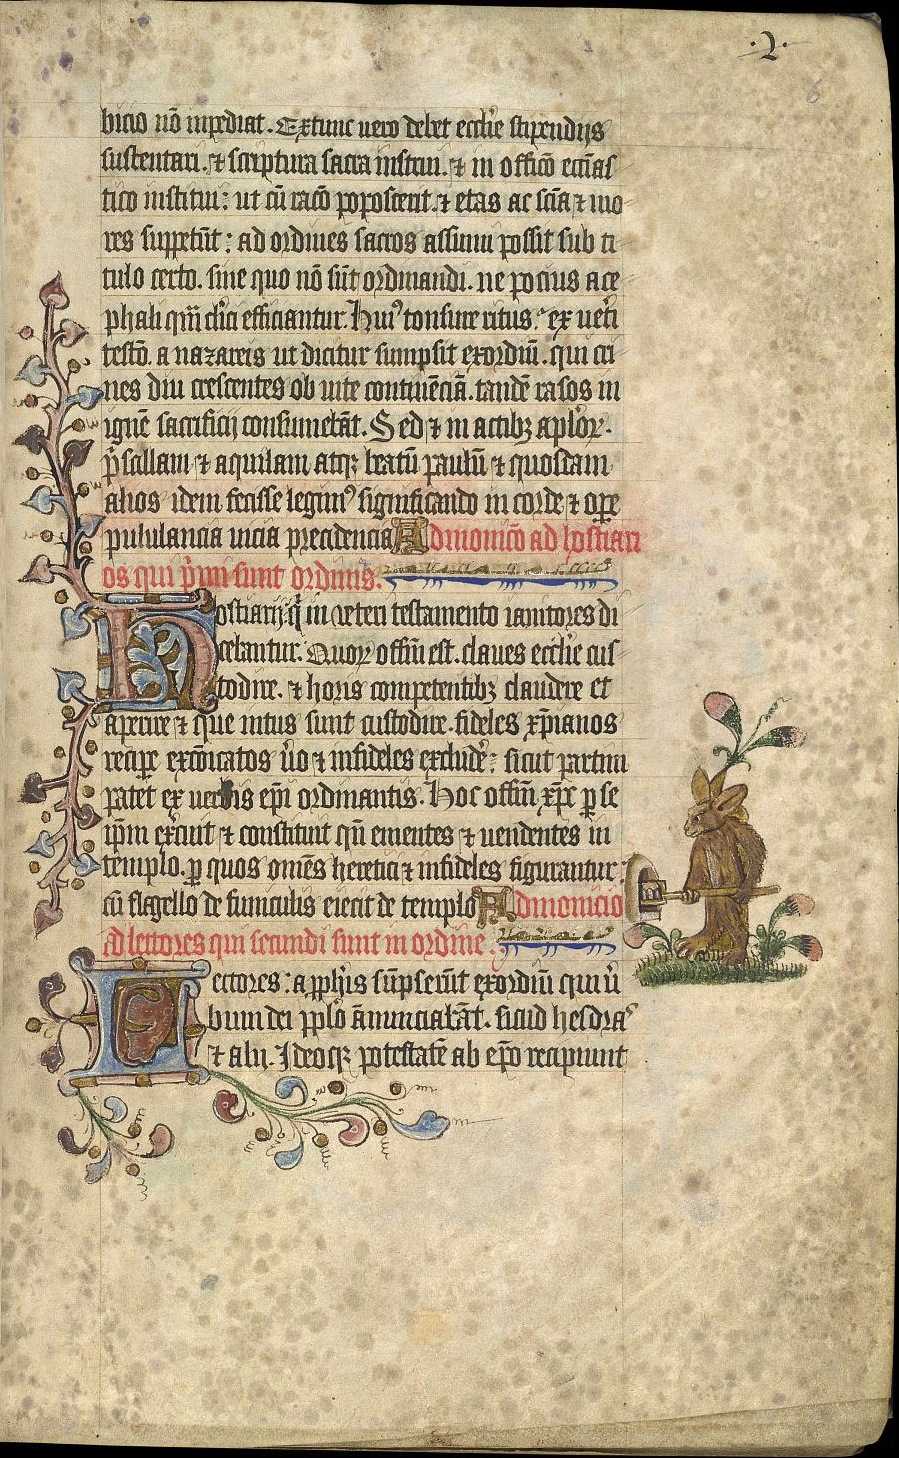 ·2·
6
bicio nō inpediat. Extunc vero debet ecclīe stipendijs
sustentari. ⁊ scriptura sacra instrui. ⁊ in officō eccīas
tico institui: ut cū racō poposcerit. ⁊ etas ac scīa ⁊ mo
res suppetūt: ad ordines sacros assumi possit sub ti
tulo certo. sine quo nō sūt ordinandi. ne pocius ace
phali qm̄ clīci efficiantur. Huiꝰ tonsure ritus. ex vetī
testō. a nazareis ut dicitur sumpsit exordiū. qui cri
nes diu crescentes ob vite continēciā. tandē rasos in
ignē sacrificij consumebāt. Sed ⁊ in actibꝫ aplōꝝ.
p̄scillam ⁊ aquilam atqꝫ beatū paulū ⁊ quosdam
alios idem fecisse legimꝰ significando in corde ⁊ oꝑe
pululancia vicia precidencia Admonicō ad hostiari
os qui p̄mi sunt ordinis.
Hostiarij. q̄ in veteri testamento ianitores di
cebantur. Quoꝝ offīm est. claues ecclīe cus
todire. ⁊ horis competentibꝫ claudere et
aperire ⁊ que intus sunt custodire. fideles xp̄ianos
reciꝑe excōicatos ūo ⁊ infideles excludē: sicut partim
patet ex verbis ep̄i ordinantis. Hoc offīm xp̄c ꝑ se
ip̄m exc̄uit ⁊ constituit qn̄ ementes ⁊ vendentes in
templo. ꝑ quos omēs heretici ⁊ infideles figurantur
cū flagello de funiculis eiecit de templo Admonicio
ad lectores qui secundi sunt in ordine.
Lectores: a ꝓphīs sūpserūt exordiū qui v̄
bum dei pplō ānunciabāt. sicud hesdras
⁊ alij. Ideoqꝫ potestatē ab ep̄o recipiunt